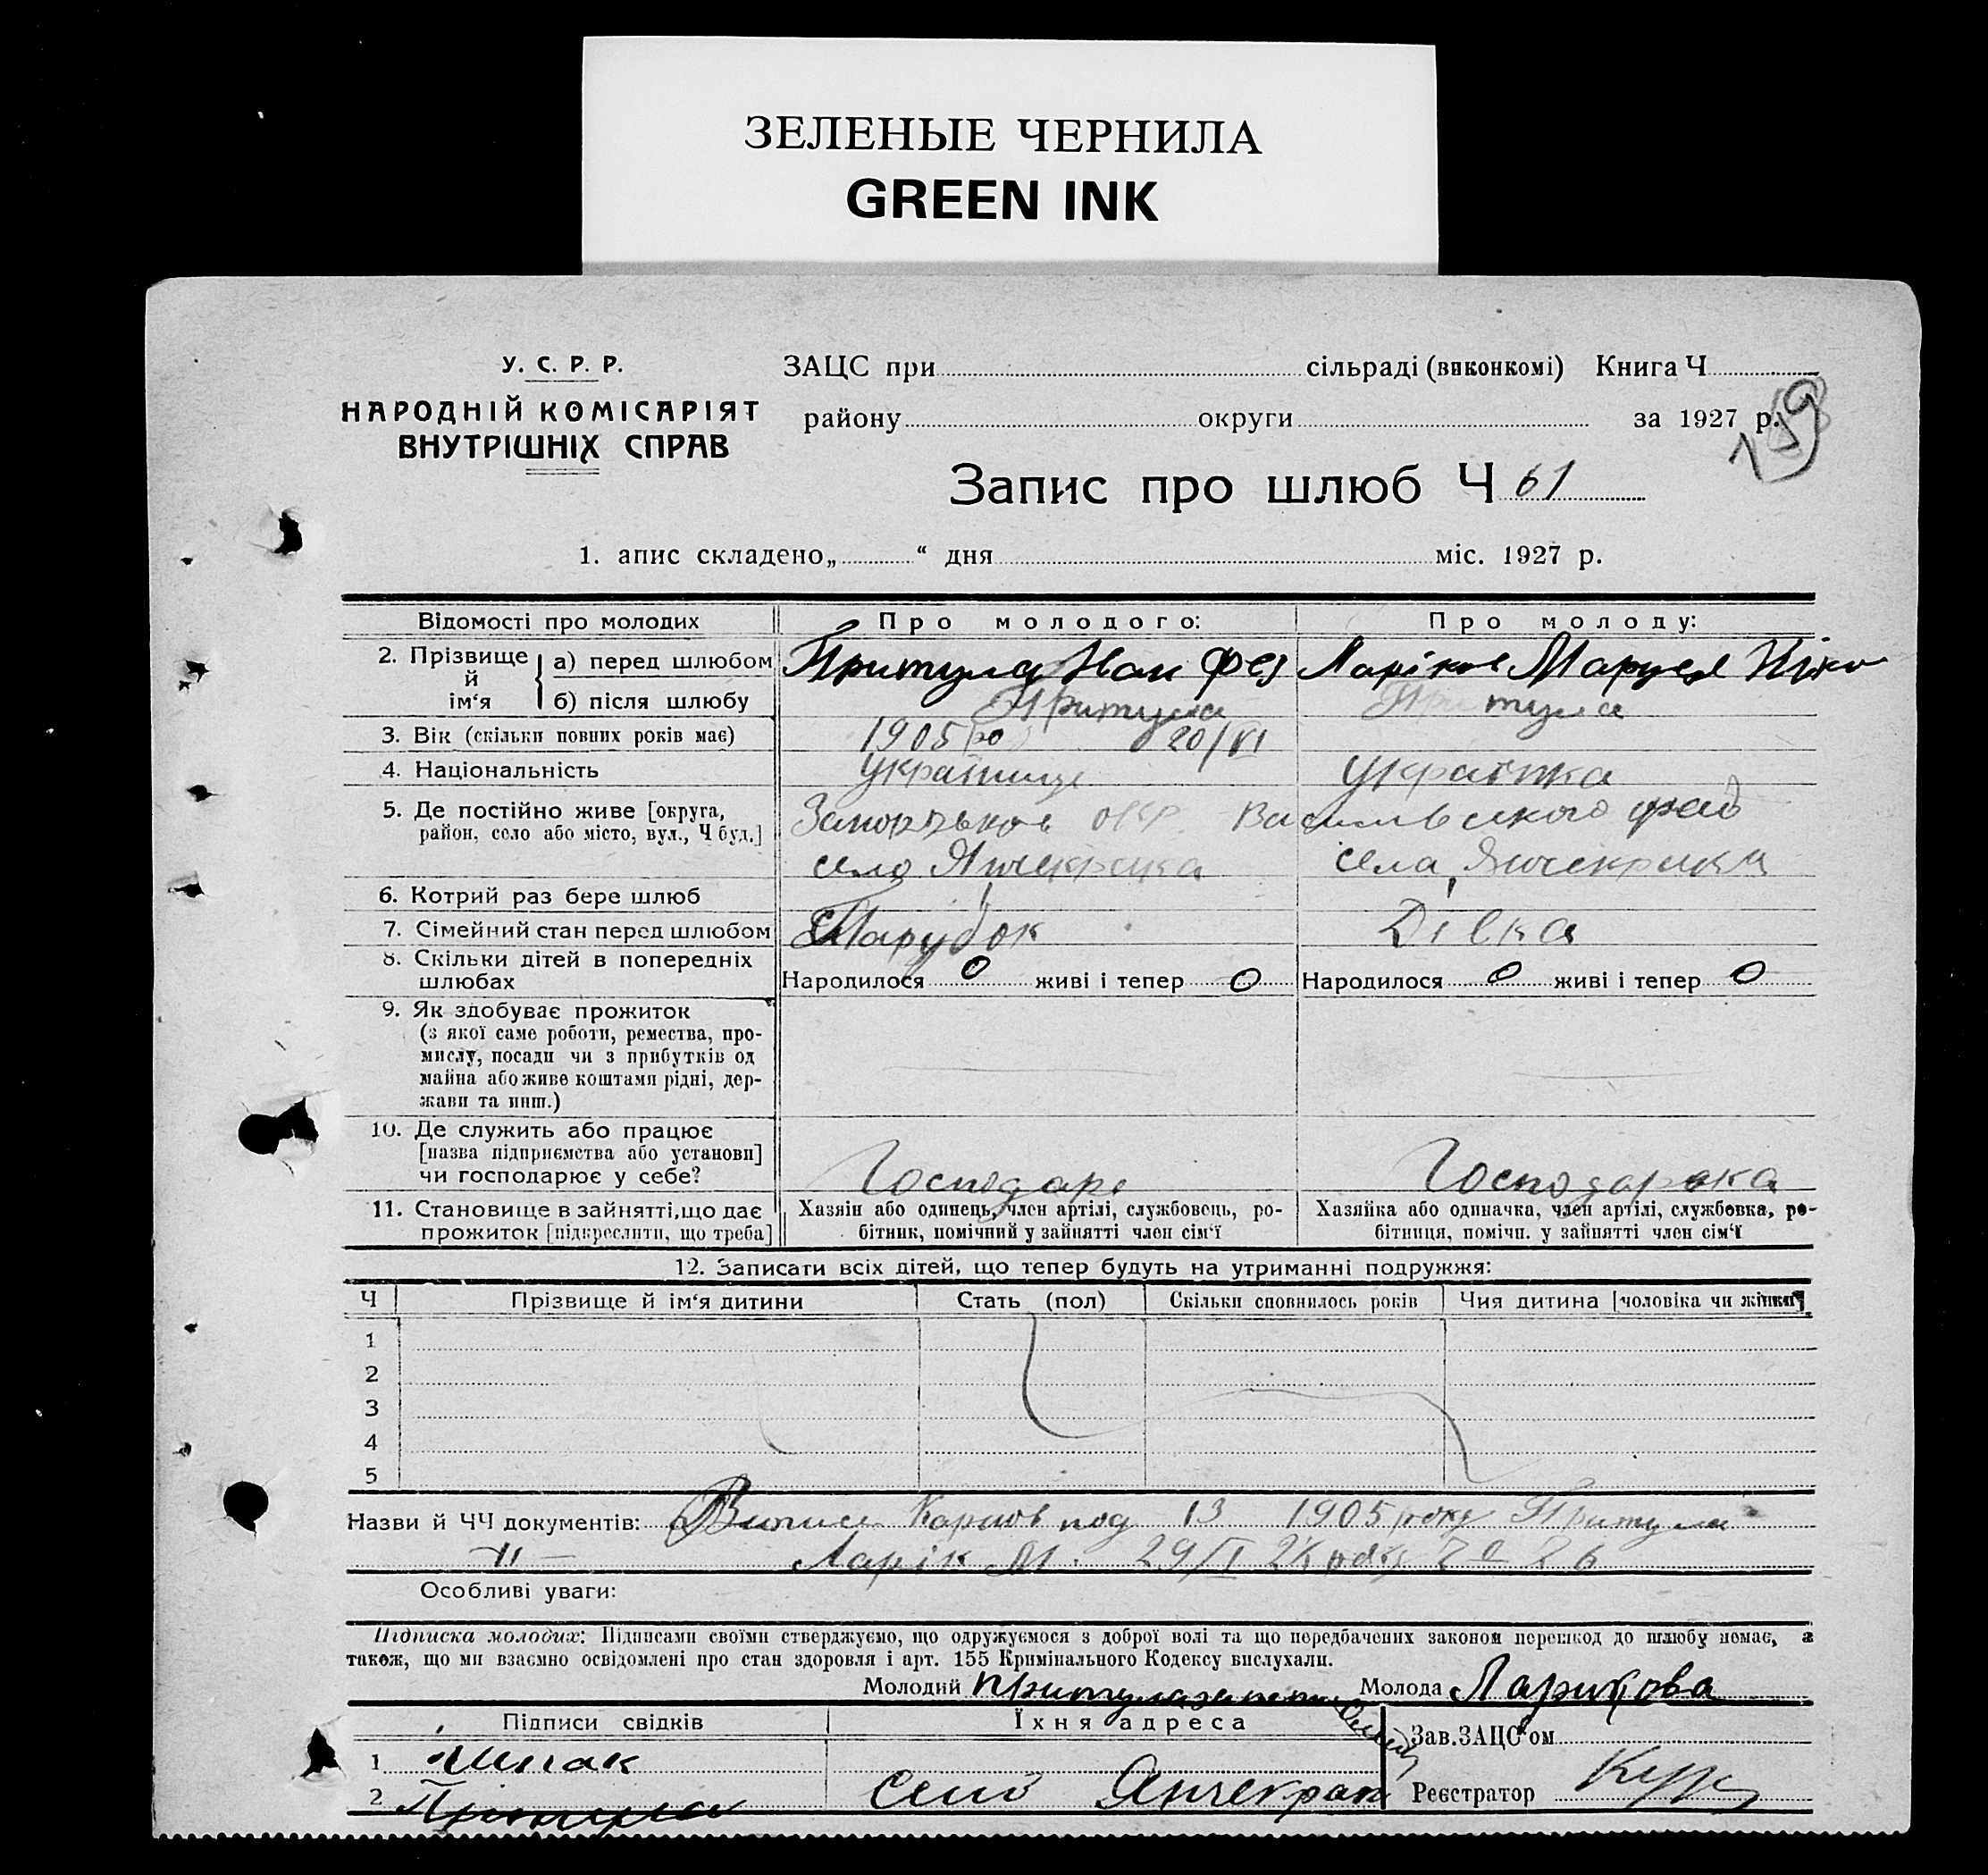 ЗЕЛЕНЫЕ ЧЕРНИЛА
GREEN INK
У. С. Р. Р.
НАРОДНІЙ КОМІСАРІЯТ
ВНУТРІШНІХ СПРАВ
ЗАЦС при сільраді (виконкомі) Книга Ч
району округи за 1927 р.
159
Запис про шлюб Ч 61
1. апис складено „ “ дня міс. 1927 р.
Відомості про молодих Про молодого: Про молоду:
2. Прізвище й ім‘я а) перед шлюбом Притула Іван Фед Ларікова Маруся Ніко
б) після шлюбу Притула Притула
3. Вік (скільки повних років має) 1905 ро 20/VI
4. Національність українець українка
5. Де постійно живе [округа, район, село або місто, вул., Ч буд.] Запорізької окр. Василівського рай
село Янчекрака села Янчекрака
6. Котрий раз бере шлюб 1 1
7. Сімейний стан перед шлюбом Парубок Дівка
8. Скільки дітей в попередніх шлюбах Народилося 0 живі і тепер 0 Народилося 0 живі і тепер 0
9. Як здобуває прожиток
(з якої саме роботи, ремества, про-
мислу, посади чи з прибутків од
майна або живе коштами рідні, дер-
жави та инш.)
10. Де служить або працює
[назва підприємства або установи]
чи господарює у себе? Господарь Господарка
11. Становище в зайнятті, що дає прожиток [підкреслити, що треба]
Хазяін або одинець, член артілі, службовець, ро-
бітник, помічний у зайнятті член сім‘ї
Хазяйка або одиначка, член артілі, службовка, ро-
бітниця, помічн. у зайнятті член сім‘ї
12. Записати всіх дітей, що тепер будуть на утриманні подружжя:
Ч Прізвище й ім‘я дитини Стать (пол) Скільки сповнилось років Чия дитина [чоловіка чи жінки]
1
2
3
4
5
Назви й ЧЧ документів: Виписи 13 1905 року Притула
-||- Ларік М. 29/I 26
Особливі уваги:
Підписка молодих: Підписами своїми стверджуємо, що одружуємося з доброї волі та що передбачених законом перешкод до шлюбу немає, а
також, що ми взаємно освідомлені про стан здоровля і арт. 155 Кримінального Кодексу вислухали.
Молодий Притула Молода Ларикова
Підписи свідків Їхня адреса Зав. ЗАЦС‘ом
1
2 Притула село Янчекрак Реєстратор